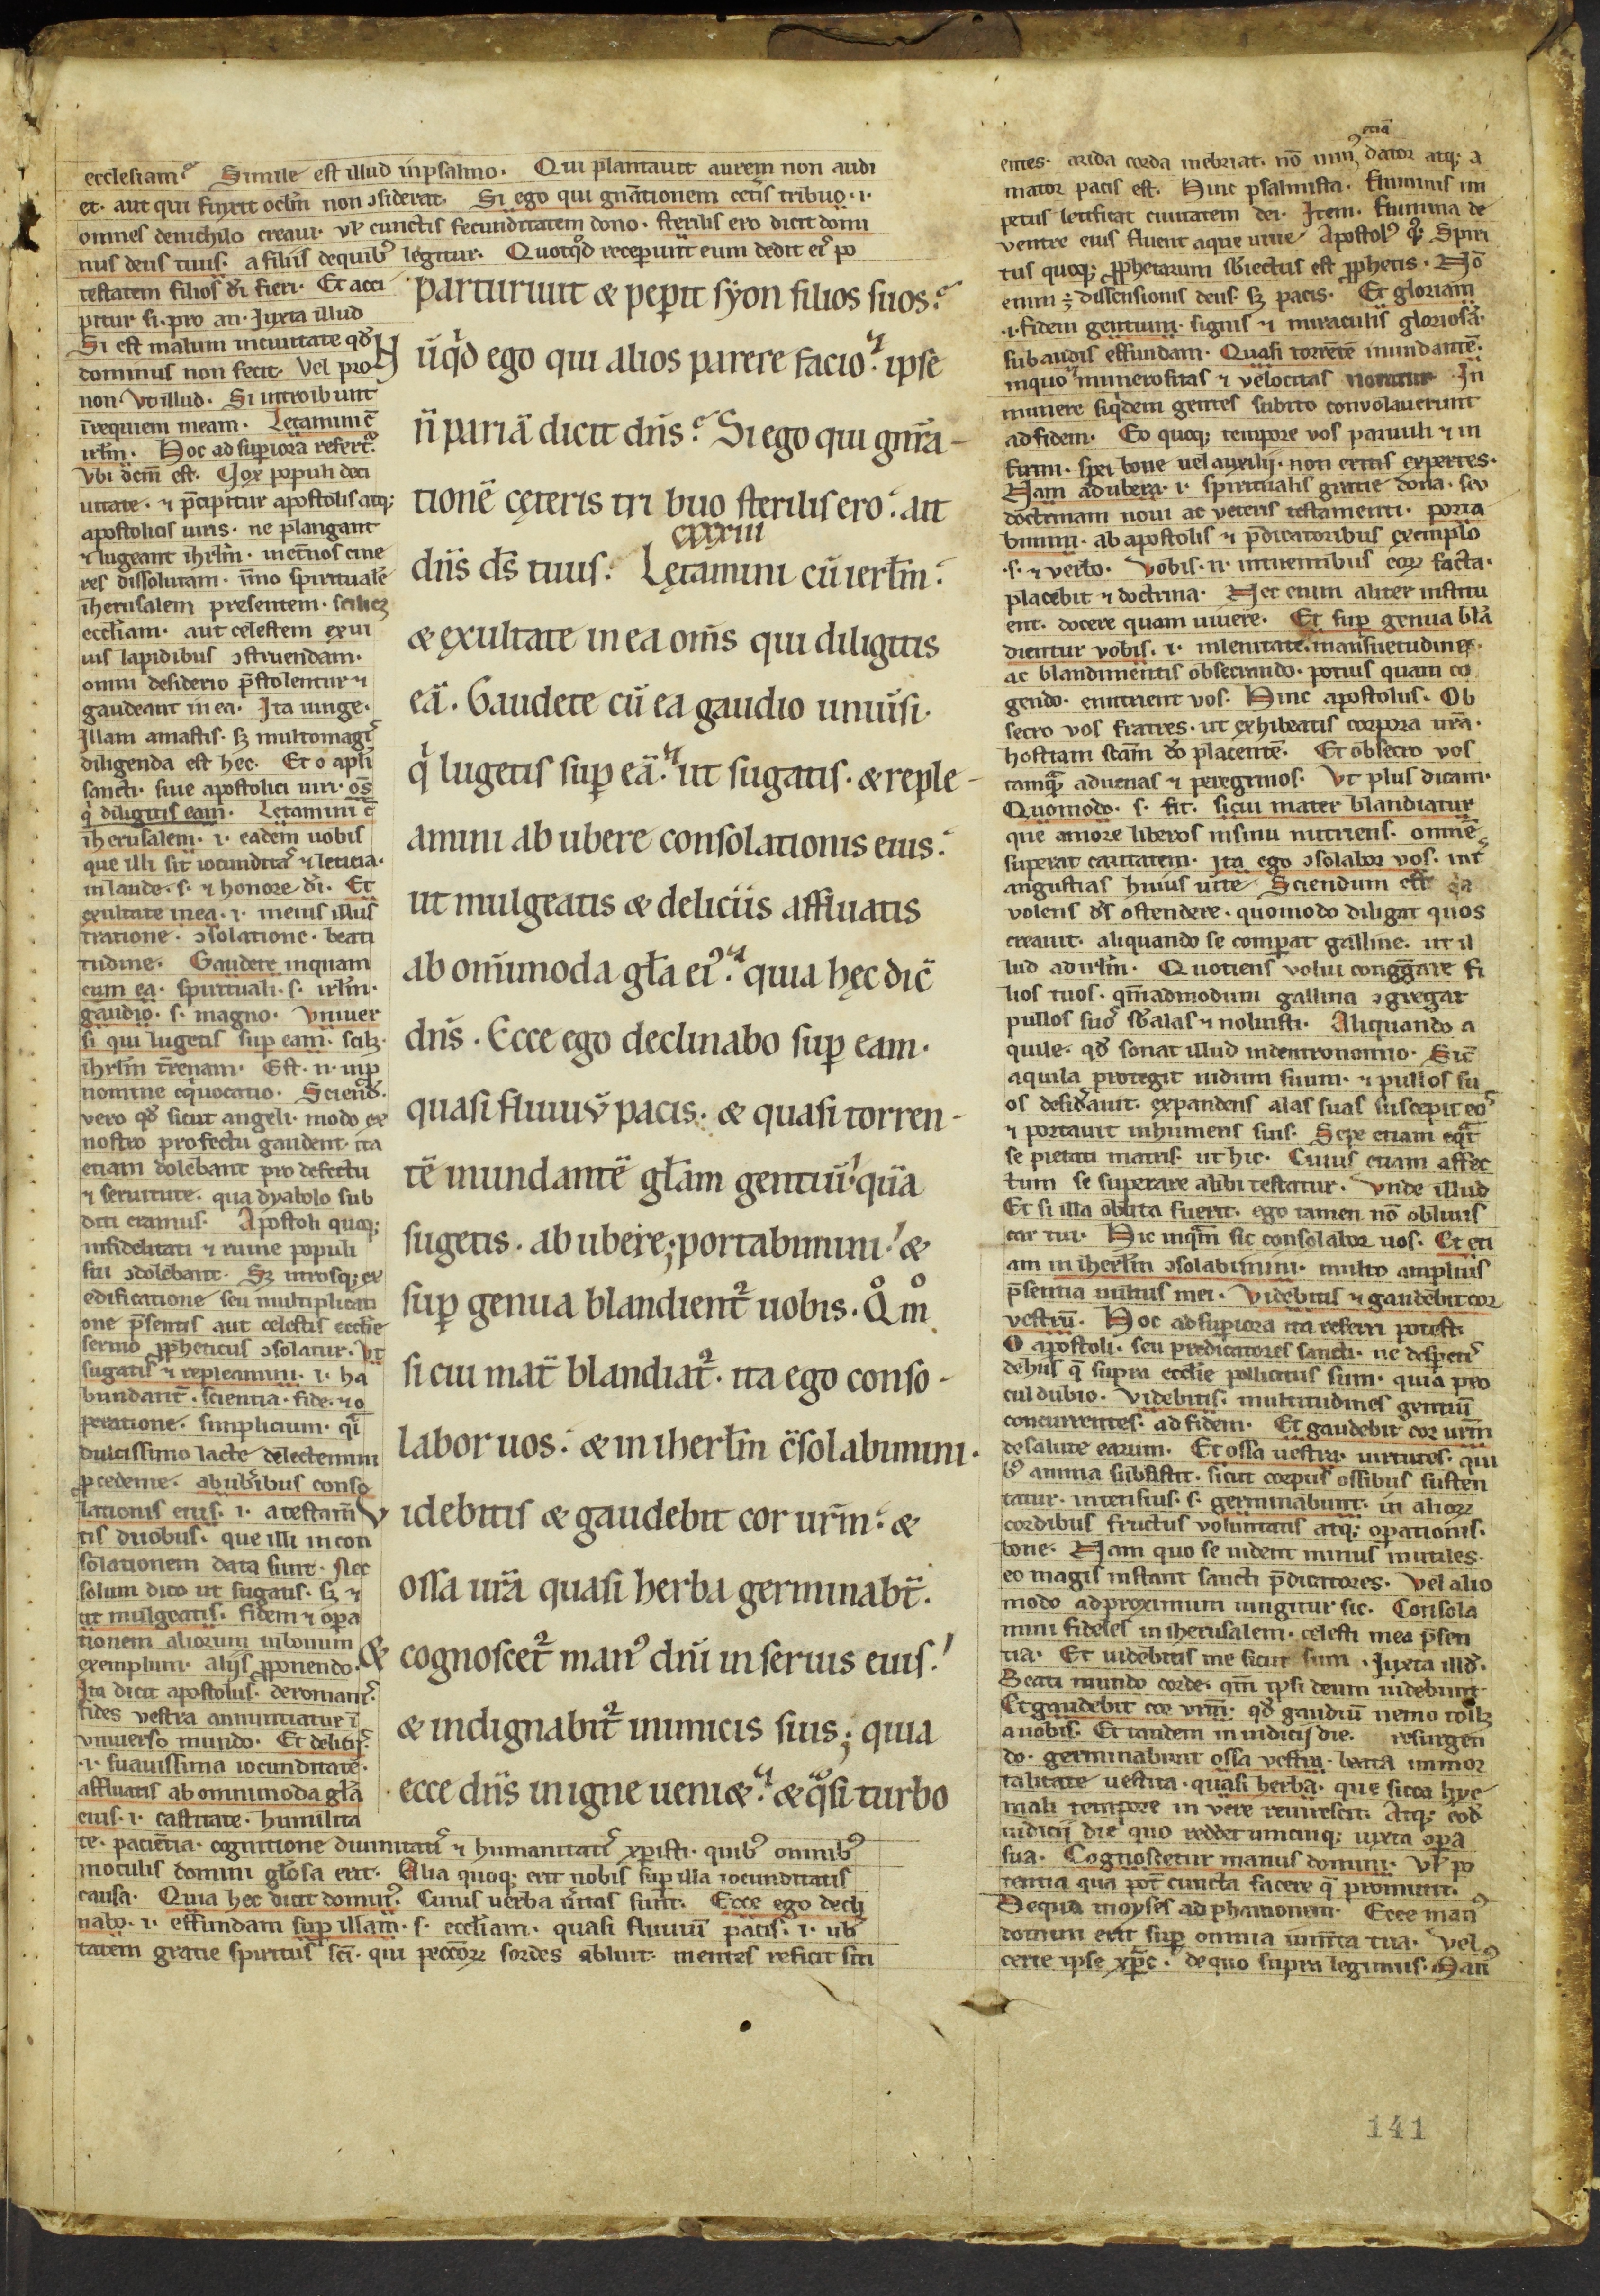 ecclesiam. Simile est illud inpsalmo. Qui plantauit aurem non audi
et. aut qui finxit oclm̅ non ↄsiderat. Si ego qui gnātionem cet̅is tribuo. i.
omnes denichilo creaui. ul̅ cunctis fecunditatem dono. sterilis ero dicit domi
nus deus tuus. a filiis dequib' legitur. Quotqͦd receperunt eum dedit ei' po
testatem filios di̅ fieri. Et acci
pitur si. pro an. Iuxta illud
Si est malum inciuitate qd̅
dominus non fecit. Vel pro
non. Vt illud. Si introibunt
ı̅requiem meam. Letamini c̅
irl̅m. Hoc ad superiora refert'.
Vbi dc̅m est. Uox populi deci
uitate. ⁊ p̅cipitur apostolis atq;
apostolicis uiris. ne plangant
⁊ lugeant ihrl̅m. inet̅nos cine
res dissolutam. īmo spirituale̅
ihersusalem presentem. scilicꝫ
eccl̅iam. aut celestem exui
uis lapidibus ↄstruendam.
omni desiderio p̅stolentur ⁊
gaudeant in ea. Ita iunge.
Illam amastis. sꝫ multomagi'
diligenda est hec. Et o apl̅i
sancti. siue apostolici uiri. os̅
q' diligitis eam. Letamini c̅
iherusalem. i. eadem uobis
que illi sit iocundita' ⁊ leticia.
in laude. s. ⁊ honore di̅. Et
exultate in ea. i. ineius illus
tratione. ↄsolatione. beati
tudine. Gaudete inquam
cum ea. spirituali. s. irl̅m.
gaudio. s. magno. Vniuer
si qui lugetis sup eam. scilꝫ.
ihrl̅m t̅renam. Est. n. inp
nomine equocatio. Sciend̅.
vero qd̅ sicut angeli. modo ex
nostro profectu gaudent. ita
etiam dolebant pro defectu
⁊ seruitute. qua dyabolo sub
diti eramus. Apostoli quoq;
infidelitati ⁊ ruine populi
sui ↄdolebant. Sꝫ utrosq; ex
edificatione seu multiplicati
one p̅sentis aut celestis eccl̅ie
sermo ꝓpheticus ↄsolatur. Vt
sugatis ⁊ repleamini. i. ha
bundant̅. scientia. fide. ⁊ o
peratione. simplicium. q̅i
dulcissimo lacte delectemini
ꝓcedente. abub̅ibus conso
lationis eius. i. atestam̅
tis duobus. que illi in con
solationem data sunt. Nec
solum dico ut sugatis. sꝫ ⁊
ut mulgeatis. fidem ⁊ opera
tionem aliorum inbonum
exemplum. aliis ꝓponendo.
Ita dicit apostolus. deroman'.
fides vestra annuntiatur ı̅
vniuerso mundo. Et delitiis.
.i. suauissima iocunditate.
affluatis ab omnimoda gl̅a
eius. i. castitate. humilita
te. pacientia. cognitione diuinitat' ⁊ humanitat' xpisti. quib' omnib'
inoculis domini gl̅osa erit. Alia quoq; erit nobis sup illa iocunditatis
causa. Quia hec dicit domin'. Cuius uerba u̅itas sunt. Ecce ego decli
nabo. i. effundam sup illam. s. eccl̅iam. quasi fluuiu̅ pacis. i. ub̅
tatem gratie spiritus sc̅i. qui peccoꝝ sordes abluit. mentes reficit siti
parturiuit & peperit syon filios suos.
Nu̅qͥd ego qui alios parere facio. ipse
n̅ paria̅ dicit dn̅s. Si ego qui gnr̅a-
tione̅ cęteris tribuo sterilis ero. ait
cxxxiii
dn̅s ds̅ tuus. Lętamini cu̅ ierl̅m.
& exultate in ea om̅s qui diligitis
ea̅. Gaudete cu̅ ea gaudio uniu̅si.
qͥ lugetis sup ea̅. ut sugatis. & reple-
amini ab ubere consolationis eius.
ut mulgeatis & deliciis affluatis
ab om̅imoda gl̅a ei'. quia hęc dic̅
dn̅s. Ecce ego declinabo sup eam.
quasi fluuiu̅ pacis. & quasi torren-
te̅ inundante̅ gl̅am gentiu̅ qu̅a
sugetis. ab ubere; portabimini. &
sup genua blandient' uobis. Qͦmͦ
si cui mat̅ blandiat'. ita ego conso-
labor uos. & in iherl̅m c̅solabimini.
Videbitis & gaudebit cor ur̅m. &
ossa ur̅a quasi herba germinab̅t.
& cognoscet' man' dn̅i in seruis eius.
& indignabit' inimicis suis; quia
ecce dn̅s in igne ueni&. & q̊si turbo
etia̅
entes. arida corda inebriat. no̅ min' dator atq; a
mator pacis est. Hinc psalmista. fluminis im
petus letificat ciuitatem dei. Item. flumina de
ventre eius fluent aque uiue. Apostol' qꝫ. Spiri
tus quoq; ꝓphetarum sb̅iectus est ꝓphetis. No̅
enim ÷ dissensionis deus. sꝫ pacis. Et gloriam
.i. fidem gentium. signis ⁊ miraculis gloriosa̅.
sub audis effundam. Quasi torrente̅ inundante̅.
inquo numerositas ⁊ velocitas notatur. In
munere siqͥdem gentes subito convolauerunt
ad fidem. Eo quoq; tempore vos paruuli ⁊ in
firmi. spei bone uel auxilii. non eritis expertes.
Nam ad ubera. i. spiritualis gratie dona. seu
doctrinam noui ac veteris testamenti. porta
bimini. ab apostolis ⁊ p̅dicatoribus exemplo
.s. ⁊ verbo. Vobis. n. intuentibus eoꝝ facta.
placebit ⁊ doctrina. Nec enim aliter institu
ent. docere quam uiuere. Et sup genua bla̅
dientur vobis. i. inlenitate. mansuetudine.
ac blandimentis obsecrando. potius quam co
gendo. enutrient vos. Hinc apostolus. Ob
secro vos fratres. ut exhibeatis corpora ur̅a.
hostiam sc̅am do̅ placente̅. Et obsecro vos
tamq̅ aduenas ⁊ peregrinos. Vt plus dicam.
Quomodo. s. fit. sicui mater blandiatur
que amore liberos insinu nutriens. omne̅
superat caritatem. Ita ego ↄsolabor vos. int̅
angustias huius uite. Sciendum est q̇a
volens ds̅ ostendere. quomodo diligat quos
creauit. aliquando se comparat galline. ut il
lud ad irl̅m. Quotiens volui congg̅are fi
lios tuos. qm̅admodum gallina ↄgregat
pullos suo' sb̅ alas ⁊ noluisti. Aliquando a
quile. qd̅ sonat illud indeutronomio. Sic̅
aquila protegit nidum suum. ⁊ pullos su
os desid̅auit. expandens alas suas suscepit eo'
⁊ portauit inhumeris suis. Sepe etiam eq̅t
se pietati matris. ut hic. Cuius etiam affec
tum se superare alibi testatur. Vnde illud
Et si illa oblita fuerit. ego tamen no̅ obliuis
car tui. Hic inqm̅ sic consolabor uos. Et eti
am in iherl̅m ↄsolabimini. multo amplius
p̅sentia uultus mei. Videbitis ⁊ gaudebit cor
vestru̅. Hoc ad superiora ita referri potest.
O apostoli. seu predicatores sancti. ne desperet'
dehiis q̅ supra eccl̅ie pollicitus sum. quia pro
cul dubio. Videbitis. multitudines gentiu̅
concurrentes. ad fidem. Et gaudebit cor ur̅m
desalute earum. Et ossa uestra. uirtutes. qui
b' anima subsistit. sicut corpus ossibus susten
tatur. intensius. s. germinabunt. in alioꝝ
cordibus fructus voluntatis atq; operationis.
bone. Nam quo se uident minus inutiles.
eo magis instant sancti p̅dicatores. Vel alio
modo adproximum iungitur sic. Consola
mini fideles in iherusalem. celesti mea p̅sen
tia. Et uidebitis me sicut sum. Iuxta illd̅.
Beati mundo corde. qm̅ ipsi deum uidebunt.
Et gaudebit cor vr̅m. qd̅ gaudiu̅ nemo tollꝫ
auobis. Et tandem in iudicii die. resurgen
do. germinabunt ossa vestra. beata immor
talitate uestita. quasi herba. que sicca hye
mali tempore in vere reuirescit. Atq; eod̅
iudicii die quo reddet unicuiq; iuxta opera
sua. Cognoscetur manus domini. Vl̅ po
tentia qua pot̅ cuncta facere q̅ promittit.
Dequa moyses ad pharaonem. Ecce man'
domini erit sup omnia ium̅ta tua. Vel
certe ipse xp̅c. de quo supra legimus. Man'
141